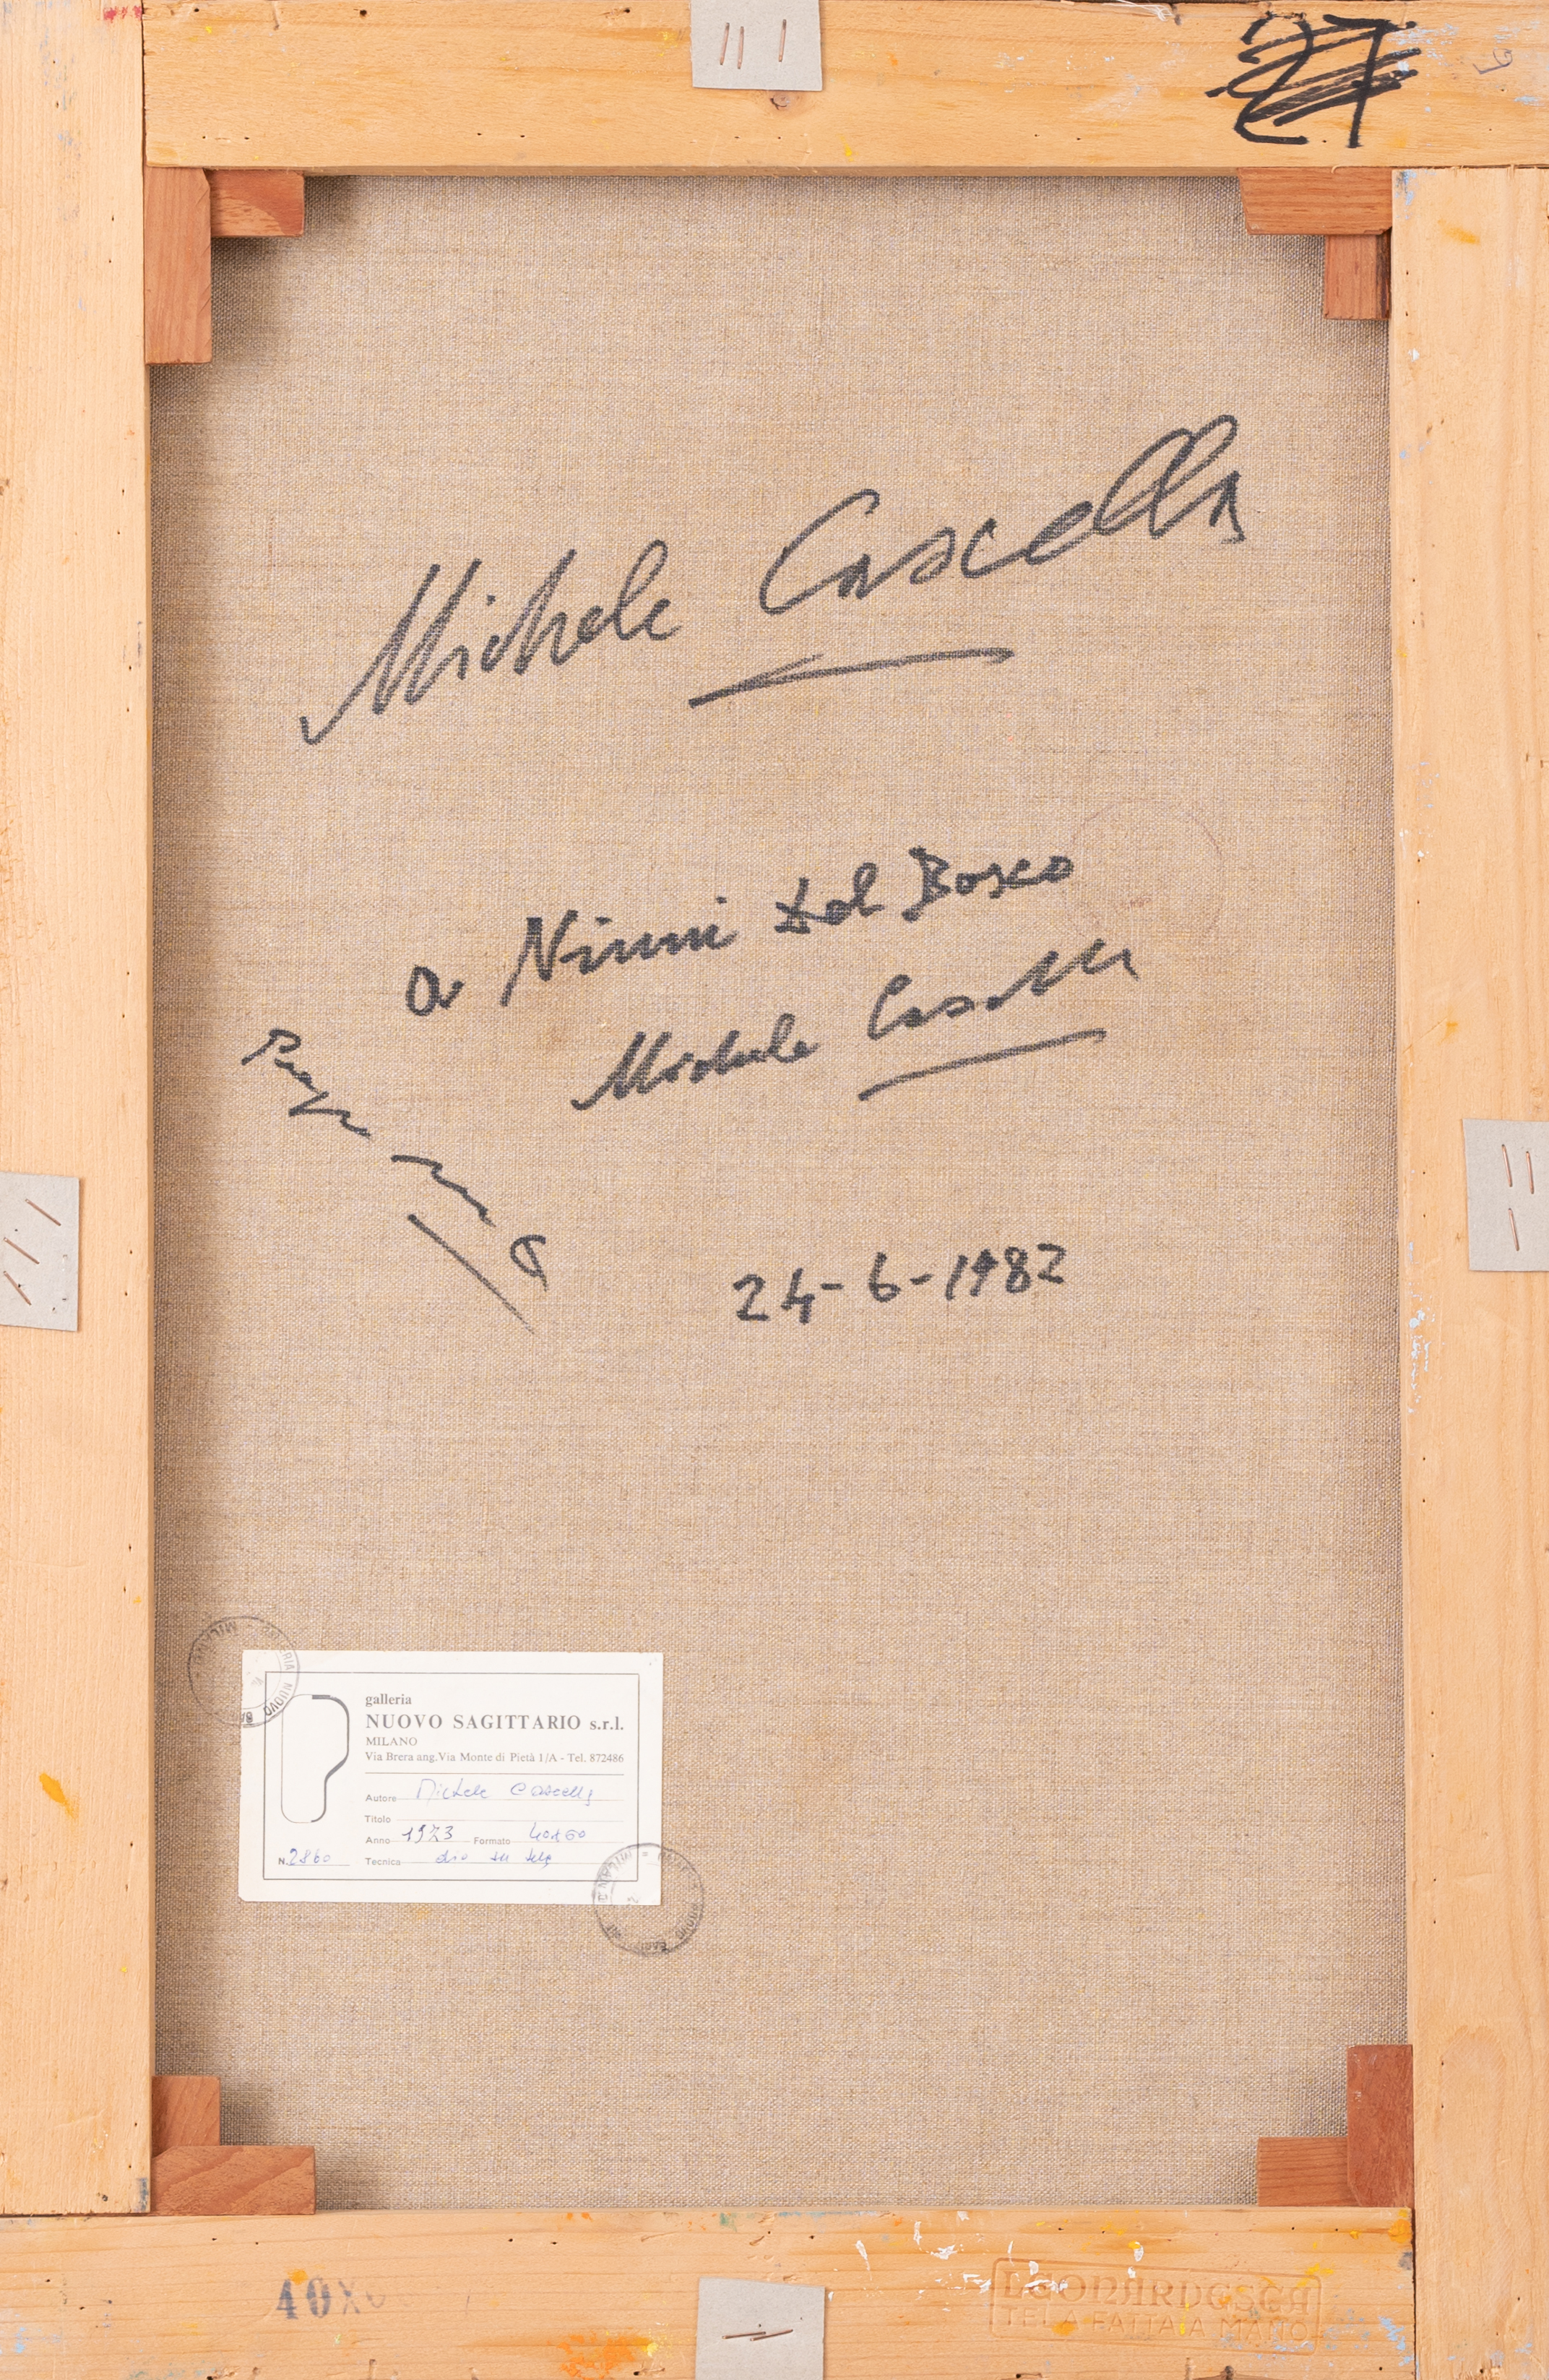 27
Michele Cascella
a Ninni Del Bosco
Michele Cascella
24-6-1982
galleria
NUOVO SAGITTARIO s.r.l.
MILANO
Via Brera ang. Via Monte di Pietà 1/A - Tel. 872486
Autore Michele Cascella
Titolo
Anno 1973 Formato 40x60
N. 2860 Tecnica olio su tela
40X6
LEONARDESCA
TELA FATTA A MANO